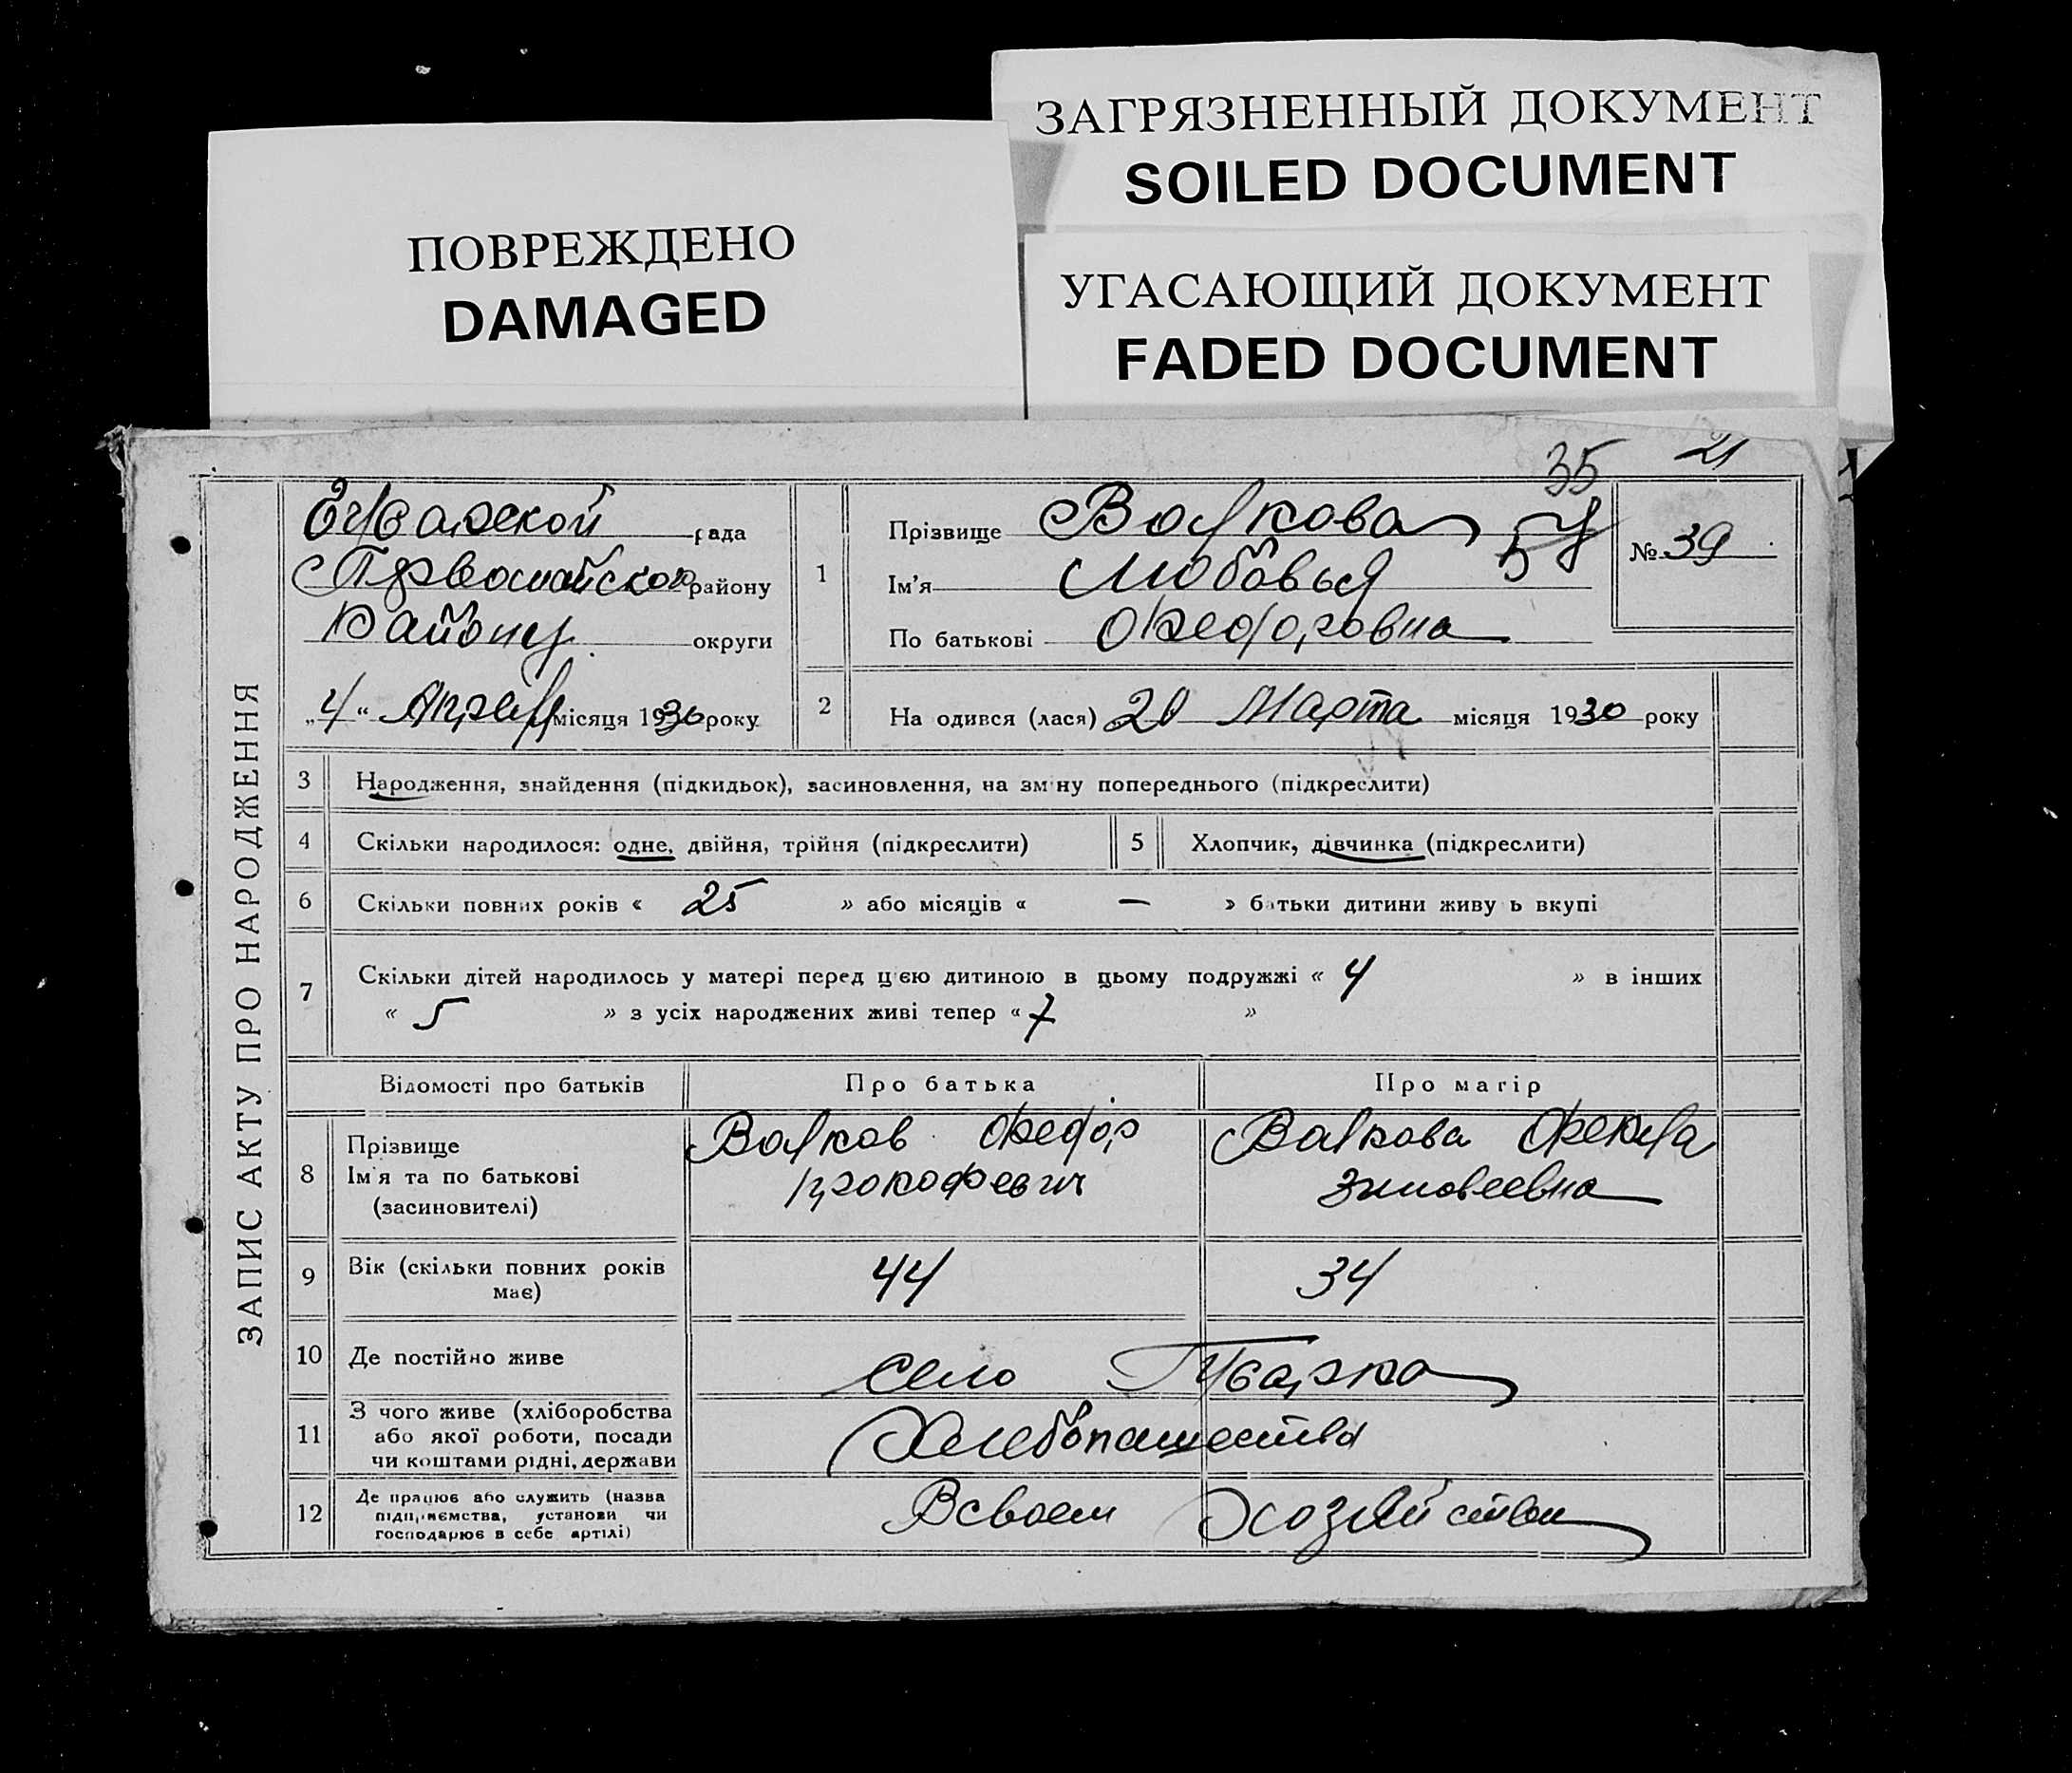 ЗАГРЯЗНЕННЫЙ ДОКУМЕНТ
SOILED DOCUMENT
ПОВРЕЖДЕНО
DAMAGED
УГАСАЮЩИЙ ДОКУМЕНТ
FADED DOCUMENT
35 21
ЗАПИС АКТУ ПРО НАРОДЖЕННЯ
рада
району
округи
„4“ місяця 1930 року
1
Прізвище Волкова
Ім'я Любовья
По батькові Федоровна
№ 39
2 На одився (лася) 20 Марта місяця 1930 року
3 Народження, знайдення (підкидьок), засиновлення, на зміну попереднього (підкреслити)
4 Скільки народилося: одне, двійня, трійня (підкреслити) 5 Хлопчик, дівчинка (підкреслити)
6 Скільки повних років « 25 » або місяців « — » батьки дитини живу ь вкупі
7 Скільки дітей народилось у матері перед цією дитиною в цьому подружжі « 4 » в інших
« 5 » з усіх народжених живі тепер « 7 »
Відомості про батьків Про батька Про матір
8 Прізвище Волков Федор Волкова Фекла
Ім'я та по батькові прокофевич Зиновеевна
(засиновителі)
9 Вік (скільки повних років має) 44 34
10 Де постійно живе село
11 З чого живе (хліборобства Хлебопашества
або якої роботи, посади
чи коштами рідні, держави
12 Де працює або служить (назва Всвоем Хозяйстве
підприємства, установи чи
господарює в себе артілі)